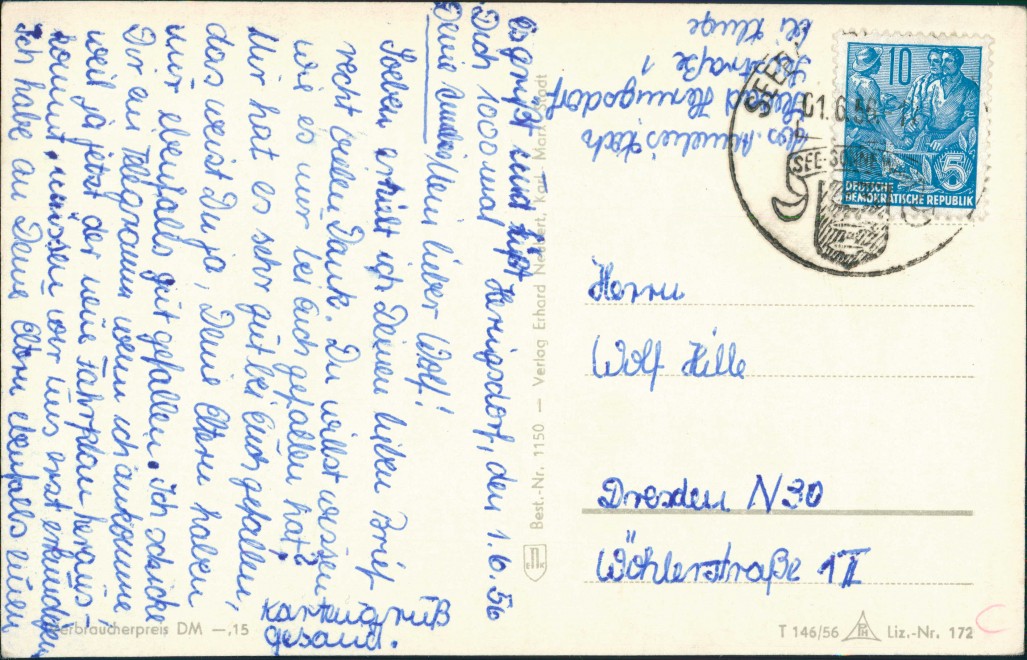 Hennigsdorf, den 1.6.56
Mein lieber Wolf!
Soeben erhielt ich Deinen lieben Brief
recht vielen Dank. Du willst wissen
wie es mir bei Euch gefallen hat?
Mir hat es sehr gut bei Euch gefallen,
das weist Du ja, Deine Eltern haben
mir ebenfalls gut gefallen. Ich schicke
Dir ein Telegramm wenn ich ankomme
weil ja jetzt der neue Fahrplan heraus-
kommt, müssen wir uns erst erkundigen
Ich habe an Deine Eltern ebenfalls einen
Kartengruß
gesand.
Es grüßt und küßt
Dich 1000 mal
Deine
Abs.
Hennigsdorf
straße 1
bei Kluge
Best.-Nr. 1150 — Verlag Erhard Neubert, Karl-Marx-Stadt
SEEB
01.6.56
SEE-SONNE
10
5
DEUTSCHE
DEMOKRATISCHE REPUBLIK
Herrn
Wolf Hille
Dresden N30
Wöhlerstraße 1 II
Verbraucherpreis DM —,15
T 146/56
Liz.-Nr. 172